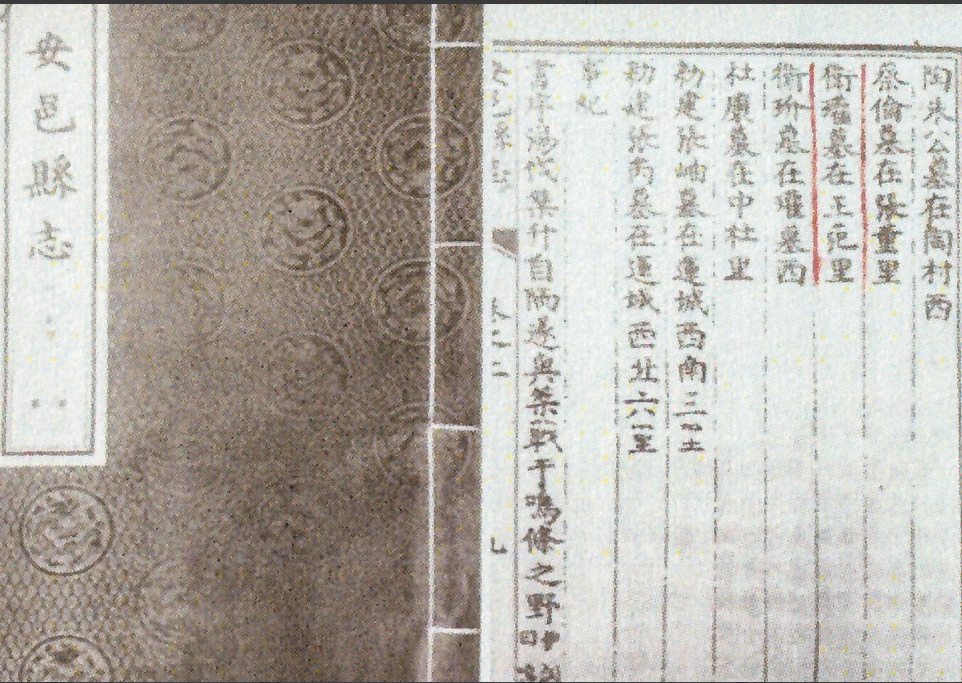 安邑縣志
陶朱公墓在陶村西
蔡倫墓在張董里
衛瓘墓在王范里
衛玠墓在瓘墓西
杜廣墓在中杜里
勅建張岫墓在運城西南三里
勅建張芮墓在運城西北六里
事紀
書序湯伐桀升自陑遂與桀戰于鳴條之野